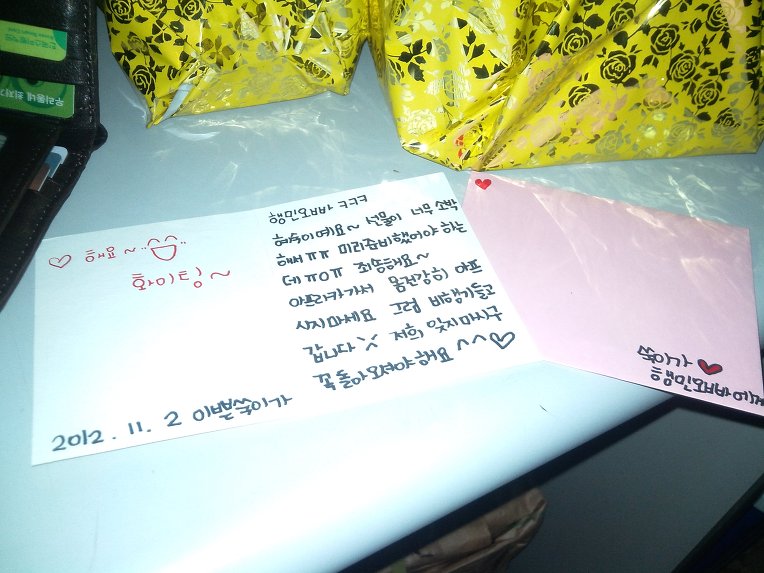 우리동네 최자
♡ 해요~
화이팅~
행민오빠빠 ㅋㅋㅋ
혀숙이예요~ 선물이 너무 소박
해서 ㅠㅠ 미리준비했어야 하는
데 ㅠ0ㅠ 죄쏭해요~
아프라카가서 몸건강히 아프
시지마세요 그럼 비행기들고
갑니다 저희 잊지마시구
꼭 돌아와셔야 해요 ^^♡
2012. 11. 2 이쁜쑥이가
쑥이가 ♥
행민오빠빠에게